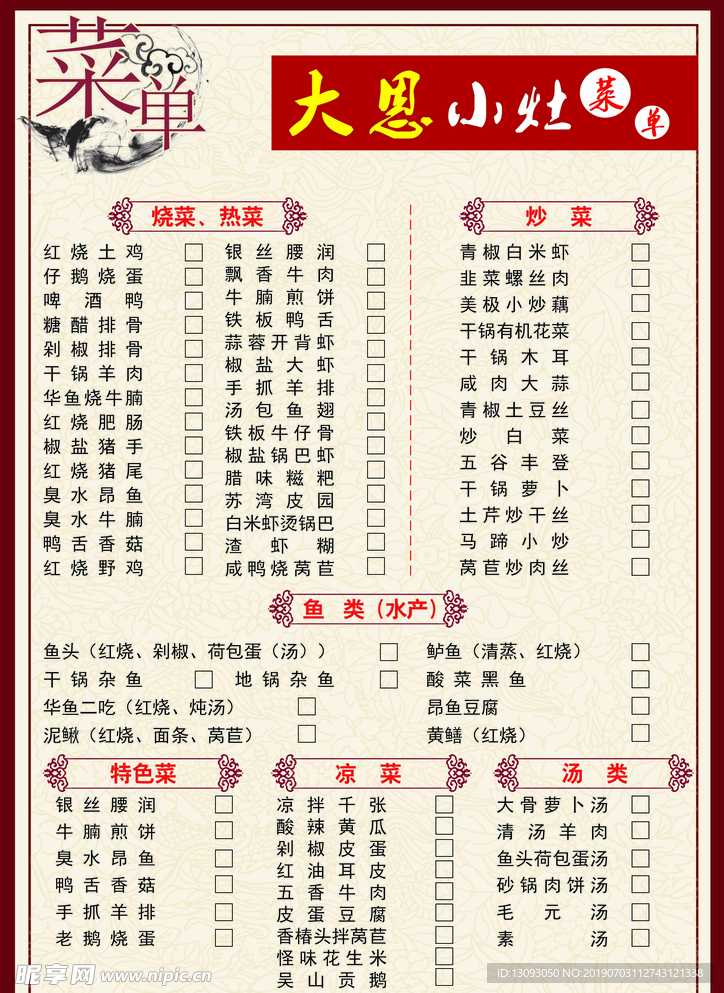 菜单
大恩小灶菜单
烧菜、热菜
红烧土鸡
仔鹅烧蛋
啤酒鸭
糖醋排骨
剁椒排骨
干锅羊肉
华鱼烧牛腩
红烧肥肠
椒盐猪手
红烧猪尾
臭水昂鱼
臭水牛腩
鸭舌香菇
红烧野鸡
银丝腰润
飘香牛肉
牛腩煎饼
铁板鸭舌
蒜蓉开背虾
椒盐大虾
手抓羊排
汤包鱼翅
铁板牛仔骨
椒盐锅巴虾
腊味糍粑
苏湾皮园
白米虾烫锅巴
渣虾糊
咸鸭烧莴苣
炒菜
青椒白米虾
韭菜螺丝肉
美极小炒藕
干锅有机花菜
干锅木耳
咸肉大蒜
青椒土豆丝
炒白菜
五谷丰登
干锅萝卜
土芹炒干丝
马蹄小炒
莴苣炒肉丝
鱼类（水产）
鱼头（红烧、剁椒、荷包蛋（汤））
鲈鱼（清蒸、红烧）
干锅杂鱼 地锅杂鱼
酸菜黑鱼
华鱼二吃（红烧、炖汤）
昂鱼豆腐
泥鳅（红烧、面条、莴苣）
黄鳝（红烧）
特色菜
银丝腰润
牛腩煎饼
臭水昂鱼
鸭舌香菇
手抓羊排
老鹅烧蛋
凉菜
凉拌千张
酸辣黄瓜
剁椒皮蛋
红油耳皮
五香牛肉
皮蛋豆腐
香椿头拌莴苣
怪味花生米
吴山贡鹅
汤类
大骨萝卜汤
清汤羊肉
鱼头荷包蛋汤
砂锅肉饼汤
毛元汤
素汤
昵享网 www.nipic.cn
ID:13093050 NO:20190703112743121338